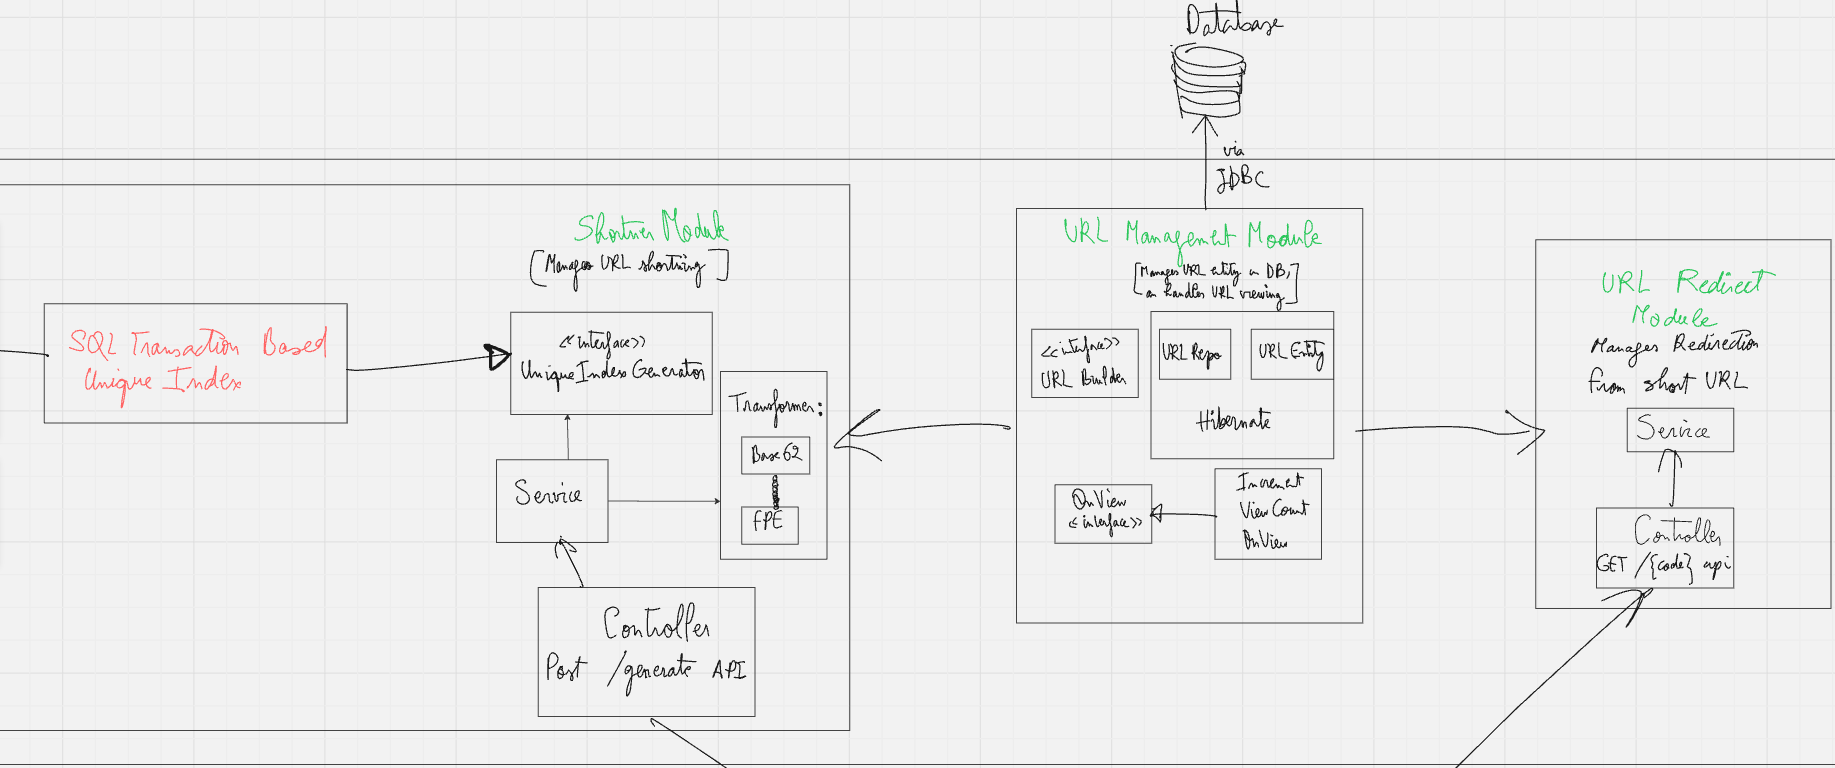 Database
via
JDBC
Shortner Module
[Manages URL shortning]
SQL Transaction Based
Unique Index
<<interface>>
Unique Index Generator
Transformer:
Base62
FPE
Service
Controller
Post /generate API
URL Management Module
[Manages URL entity in DB,
an handles URL viewing]
<<interface>>
URL Builder
URL Repo
URL Entity
Hibernate
OnView
<<interface>>
Increment
View Count
OnView
URL Redirect
Module
Manages Redirection
from short URL
Service
Controller
GET /{code} api